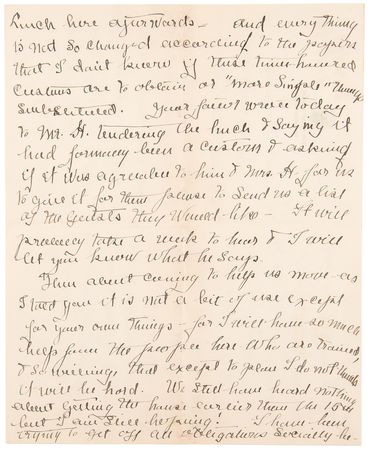 Lunch here afterwards - and every thing
is not so changed according to the papers
that I don't know if these time honored
customs are to obtain or "more simple" things
substituted. Your father wrote today
to Mr. H. tendering the lunch & saying it
had formerly been a custom & asking
if it was agreeable to him & Mrs. H. for us
to give it for them please to send us a list
of the guests they would like - It will
probably take a week to hear & I will
let you know what he says.
Then about coming to help us move - as
I told you it is not a bit of use except
for your own things - for I will have so much
help from the people here who are trained
& so willing, that except to plan I do not think
it will be hard. We still have heard nothing
about getting the house earlier than the 15th
but I am still hoping! I have been
trying to get off all obligations socially he-